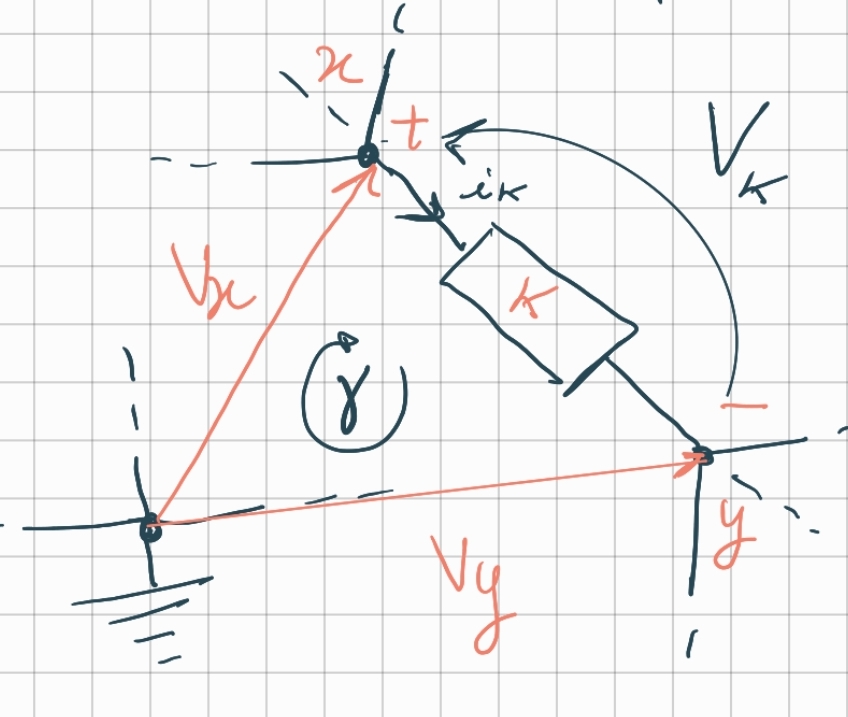 x
+
i_K
V_K
V_x
K
γ
−
V_y
y